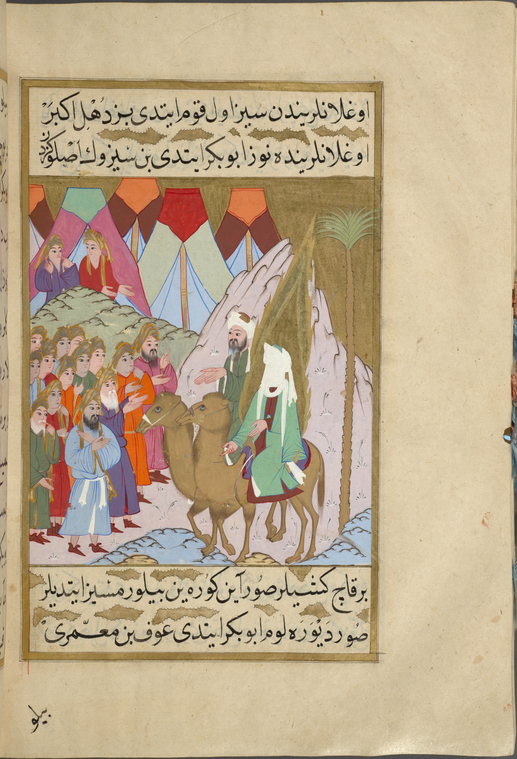 اوغلانلریندن سیز اول قوم ایتدی بز دهل اکبر
اوغلانلرینده نوز ابو بکر ایتدی بن سیزوك اصلوکزدن
بر قاچ کشیلر صوراین کوره ین بیلورمسیز ایتدیلر
صور دیوره لوم ابو بکر ایتدی عوف بن معمری
بیلو